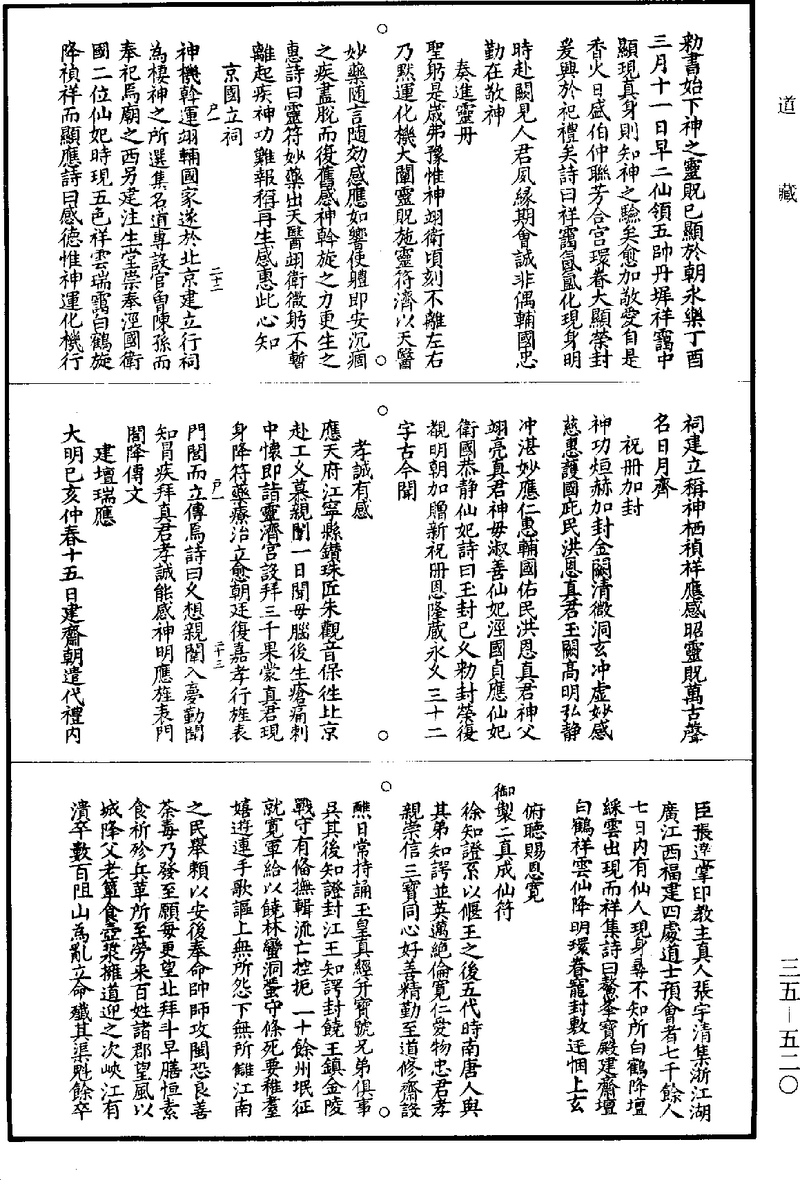 道藏
勑書始下神之靈貺已顯於朝永樂丁酉
三月十一日早二仙領五帥丹墀祥靄中
顯現真身則知神之驗矣愈加敬愛自是
香火日盛伯仲聯芳合宮環眷大顯榮封
爰興於祀禮矣詩曰祥靄氤氳化現身明
時赴闕見人君夙緣期會誠非偶輔國忠
勤在敬神
奏進靈丹
聖躬是歲弗豫惟神翊衛頃刻不離左右
乃黙運化機大闡靈貺施靈符濟以天醫
妙藥随言随効感應如響使體即安沉痼
之疾盡脫而復舊感神斡旋之力更生之
惠詩曰靈符妙藥出天醫翊衛微躬不暫
離起疾神功難報稱再生感惠此心知
京國立祠
尸一
二十二
神機斡運翊輔國家遂於北京建立行祠
為棲神之所選集名道專設官曽陳孫而
奉祀焉廟之西另建注生堂崇奉涇國衛
國二位仙妃時現五色祥雲瑞靄白鶴旋
降禎祥而顯應詩曰感德惟神運化機行
祠建立稱神栖禎祥應感昭靈貺萬古聲
名日月齊
祝册加封
神功烜赫加封金闕清微洞玄冲虛妙感
慈惠護國庇民洪恩真君玉闕髙明弘静
冲湛妙應仁惠輔國佑民洪恩真君神父
翊亮真君神母淑善仙妃涇國貞應仙妃
衛國恭静仙妃詩曰玉封已乆勑封榮復
覩明朝加贈新祝册恩隆蕆永乆三十二
字古今聞
孝誠有感
應天府江寧縣鑽珠匠朱觀音保徃北京
赴工乆慕親闈一日聞母腦後生瘡痛刺
中懷即詣靈濟宮設拜三千果蒙真君現
身降符藥療治立愈朝廷復嘉孝行旌表
尸一
二十三
門閭而立傳焉詩曰乆想親闈入夢勤聞
知冐疾拜真君孝誠能感神明應旌表門
閭降傳文
建壇瑞應
大明已亥仲春十五日建齋朝遣代禮内
臣張逵掌印教主真人張宇清集浙江湖
廣江西福建四處道士預會者七千餘人
七日内有仙人現身尋不知所白鶴降壇
綵雲出現而祥集詩曰鰲峯寶殿建齋壇
白鶴祥雲仙降明環眷寵封敷迋悃上玄
俯聽賜恩寛
御製二真成仙符
徐知證系以偃王之後五代時南唐人與
其弟知諤並英邁絶倫寛仁愛物忠君孝
親崇信三寶同心好善精勤至道修齋設
醮日常持誦玉皇真經并寳號兄弟俱事
吳其後知證封江王知諤封饒王鎮金陵
戰守有俻撫輯流亡控扼一十餘州垊征
就寛軍給以饒林蠻洞蜑守條死要稚耋
嬉遊連手歌謳上無所怨下無所讎江南
之民舉頼以安後奉命帥師攻閩恐良善
荼毒乃發至願每更望北拜斗早膳恒素
食祈殄兵革所至勞来百姓諸郡望風以
城降父老簞食壺漿擁道迎之次峽江有
潰卒數百阻山為亂立命殱其渠魁餘卒
三五—五二〇